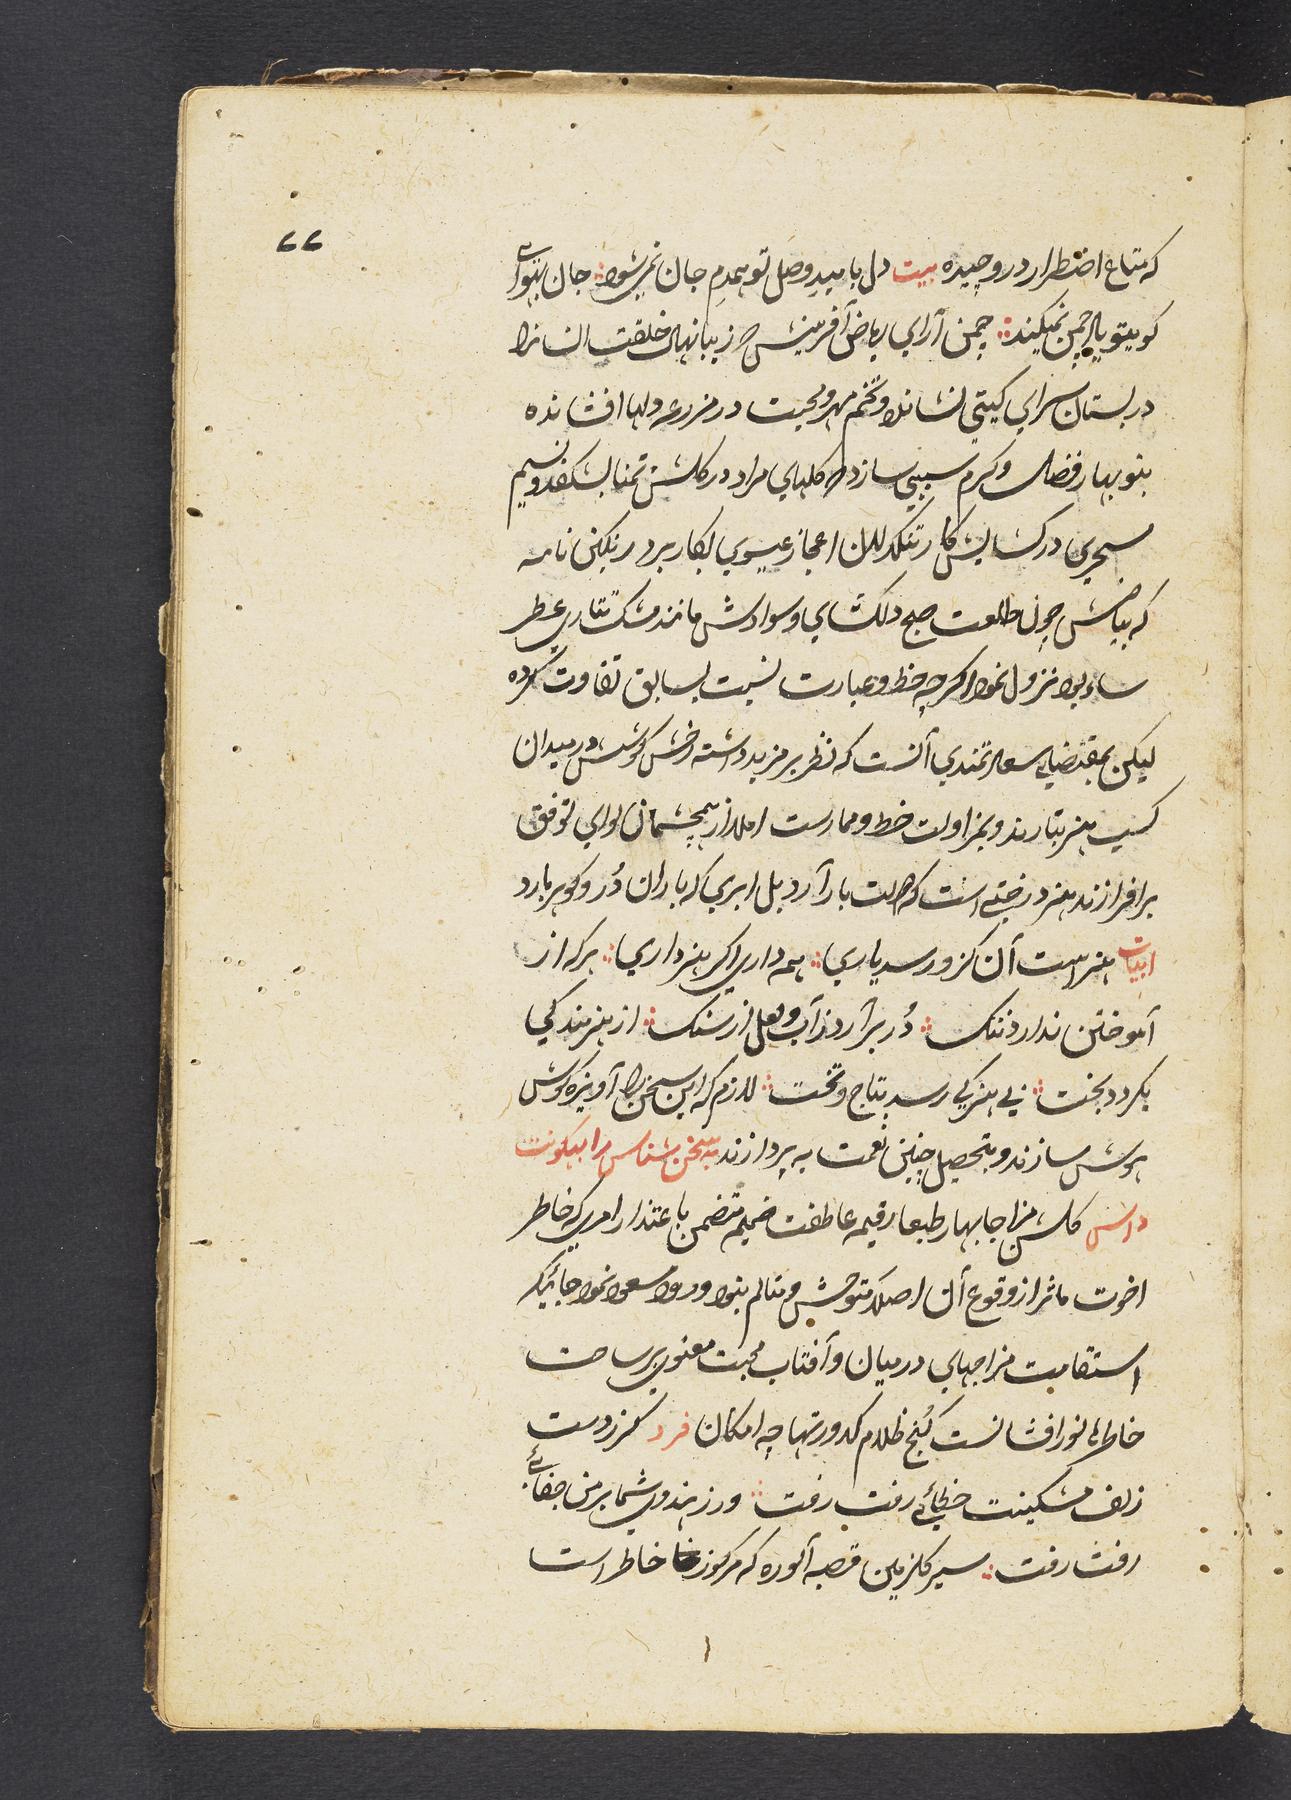 ۷۷
که متاع اضطرار در و چیده بیت دل بامید وصل تو همدم جان نمیشود جان بیتوای
کو بیتو یاد چمن نمیکند چمن آرای ریاض آفرینش که زیبا نهال خلقت انسانرا
در بستان سرای کیتی نشانده و تخم مهر و محبت در مزرعه دلها افشانده
بنو بهار فضل و کرم سببی سازد که کلهای مراد در کلشن تمنا بشکفد و نسیم
سحری در کشایش کار تنکدلان اعجاز عیسوی بکار برد رنکین نامه
که بیاضش چون طلعت صبح دلکشای و سوادش مانند مشک تتاری عطر
ساء بود نزول نمود اکرچه خط و عبارت نسبت بسابق تفاوت کرده
لیکن بمقتضای سعادتمندی آنست که نظر بر مزید داشته رخش کوشش در میدان
کسب هنر بتازند و بمزاولت خط و ممارست املا از همچشمان لوای تفوق
برافرازند هنر درختی است که دولت بار آرد بل ابری که باران در و کوهر بارد
ابیات هنر است آن کزو رسد یاری همه داری اکر هنر داری هرکه از
آموختن ندارد ننک در برآرد ز آب و لعل از سنک از هنر بندکی
بکردد بخت بی هنر کی رسد بتاج و تخت لازم که این سخن را آویزه کوش
هوش سازند و بتحصیل چنین نعمت به پردازند به سخن شناس
داس کلشن مزاجا بهار طبعا رقیمه عاطفت ضمیمه متضمن باعتذار امری که خاطر
اخوت ماثر از وقوع آن اصلا متوحش و متالم نبود ورود مسعود نمود جائیکه
استقامت مزاجهای درمیان و آفتاب محبت معنوی بر ساحت
خاطرها نور افشانست کنج ظلام کدورتها چه امکان فرد کر ز دست
زلف مشکینت خطائی رفت رفت ور ز هندوی شما بر من جفائی
رفت رفت سیر کلزمین قصبه آلوره که مرکوز خاطر است